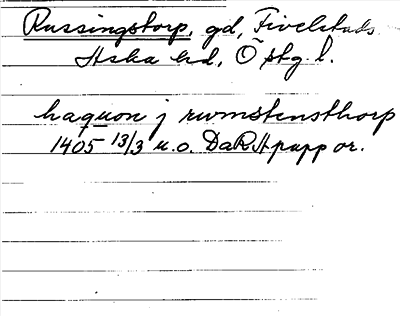 Russingstorp, gd, Fivelstads
Hska hd, Östg. l.
haquon j rwmstensthorp
1405 13/3 u.o. DaRA papp or.